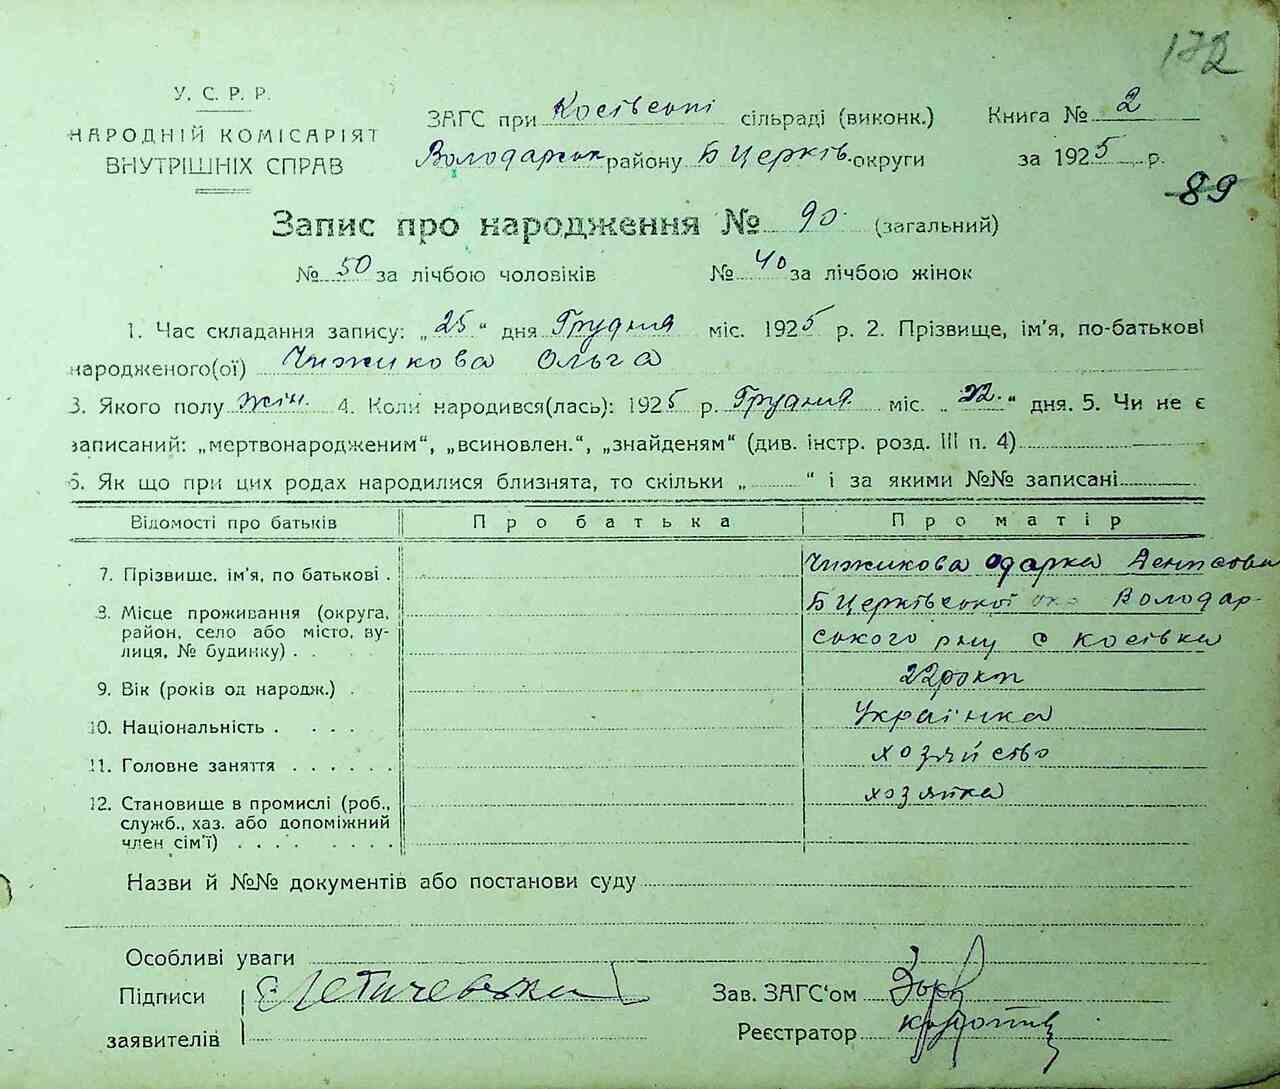 172
У. С. Р. Р.
НАРОДНІЙ КОМІСАРІЯТ
ВНУТРІШНІХ СПРАВ
ЗАГС при Косівські сільраді (виконк.) Книга № 2
Володарськ району Б Церків. округи за 1925 р.
89
Запис про народження № 90. (загальний)
№ 50 за лічбою чоловіків № 40 за лічбою жінок
1. Час складання запису: „25“ дня Грудня міс. 1925 р. 2. Прізвище, ім'я, по-батькові
народженого(ої) Чижикова Ольга
3. Якого полу жін. 4. Коли народився(лась): 1925 р. Грудня міс. „22.“ дня. 5. Чи не є
записаний: „мертвонародженим“, „всиновлен.“, „знайденям“ (див. інстр. розд. III п. 4)
6. Як що при цих родах народилися близнята, то скільки „ “ і за якими №№ записані
Відомості про батьків Про батька Про матір
7. Прізвище, ім'я, по батькові . Чижикова Одарка Денисова
8. Місце проживання (округа, район, село або місто, вулиця, № будинку) . . Б Церківської окр Володар-
ського рну с Косівка
9. Вік (років од народж.) . 22 роки
10. Національність . . . . Українка
11. Головне заняття . . . . . . хозяйство
12. Становище в промислі (роб., хозяйка
служб., хаз. або допоміжний
член сім'ї) . . . . . . . .
Назви й №№ документів або постанови суду
Особливі уваги
Підписи Зав. ЗАГС'ом
заявителів Реєстратор